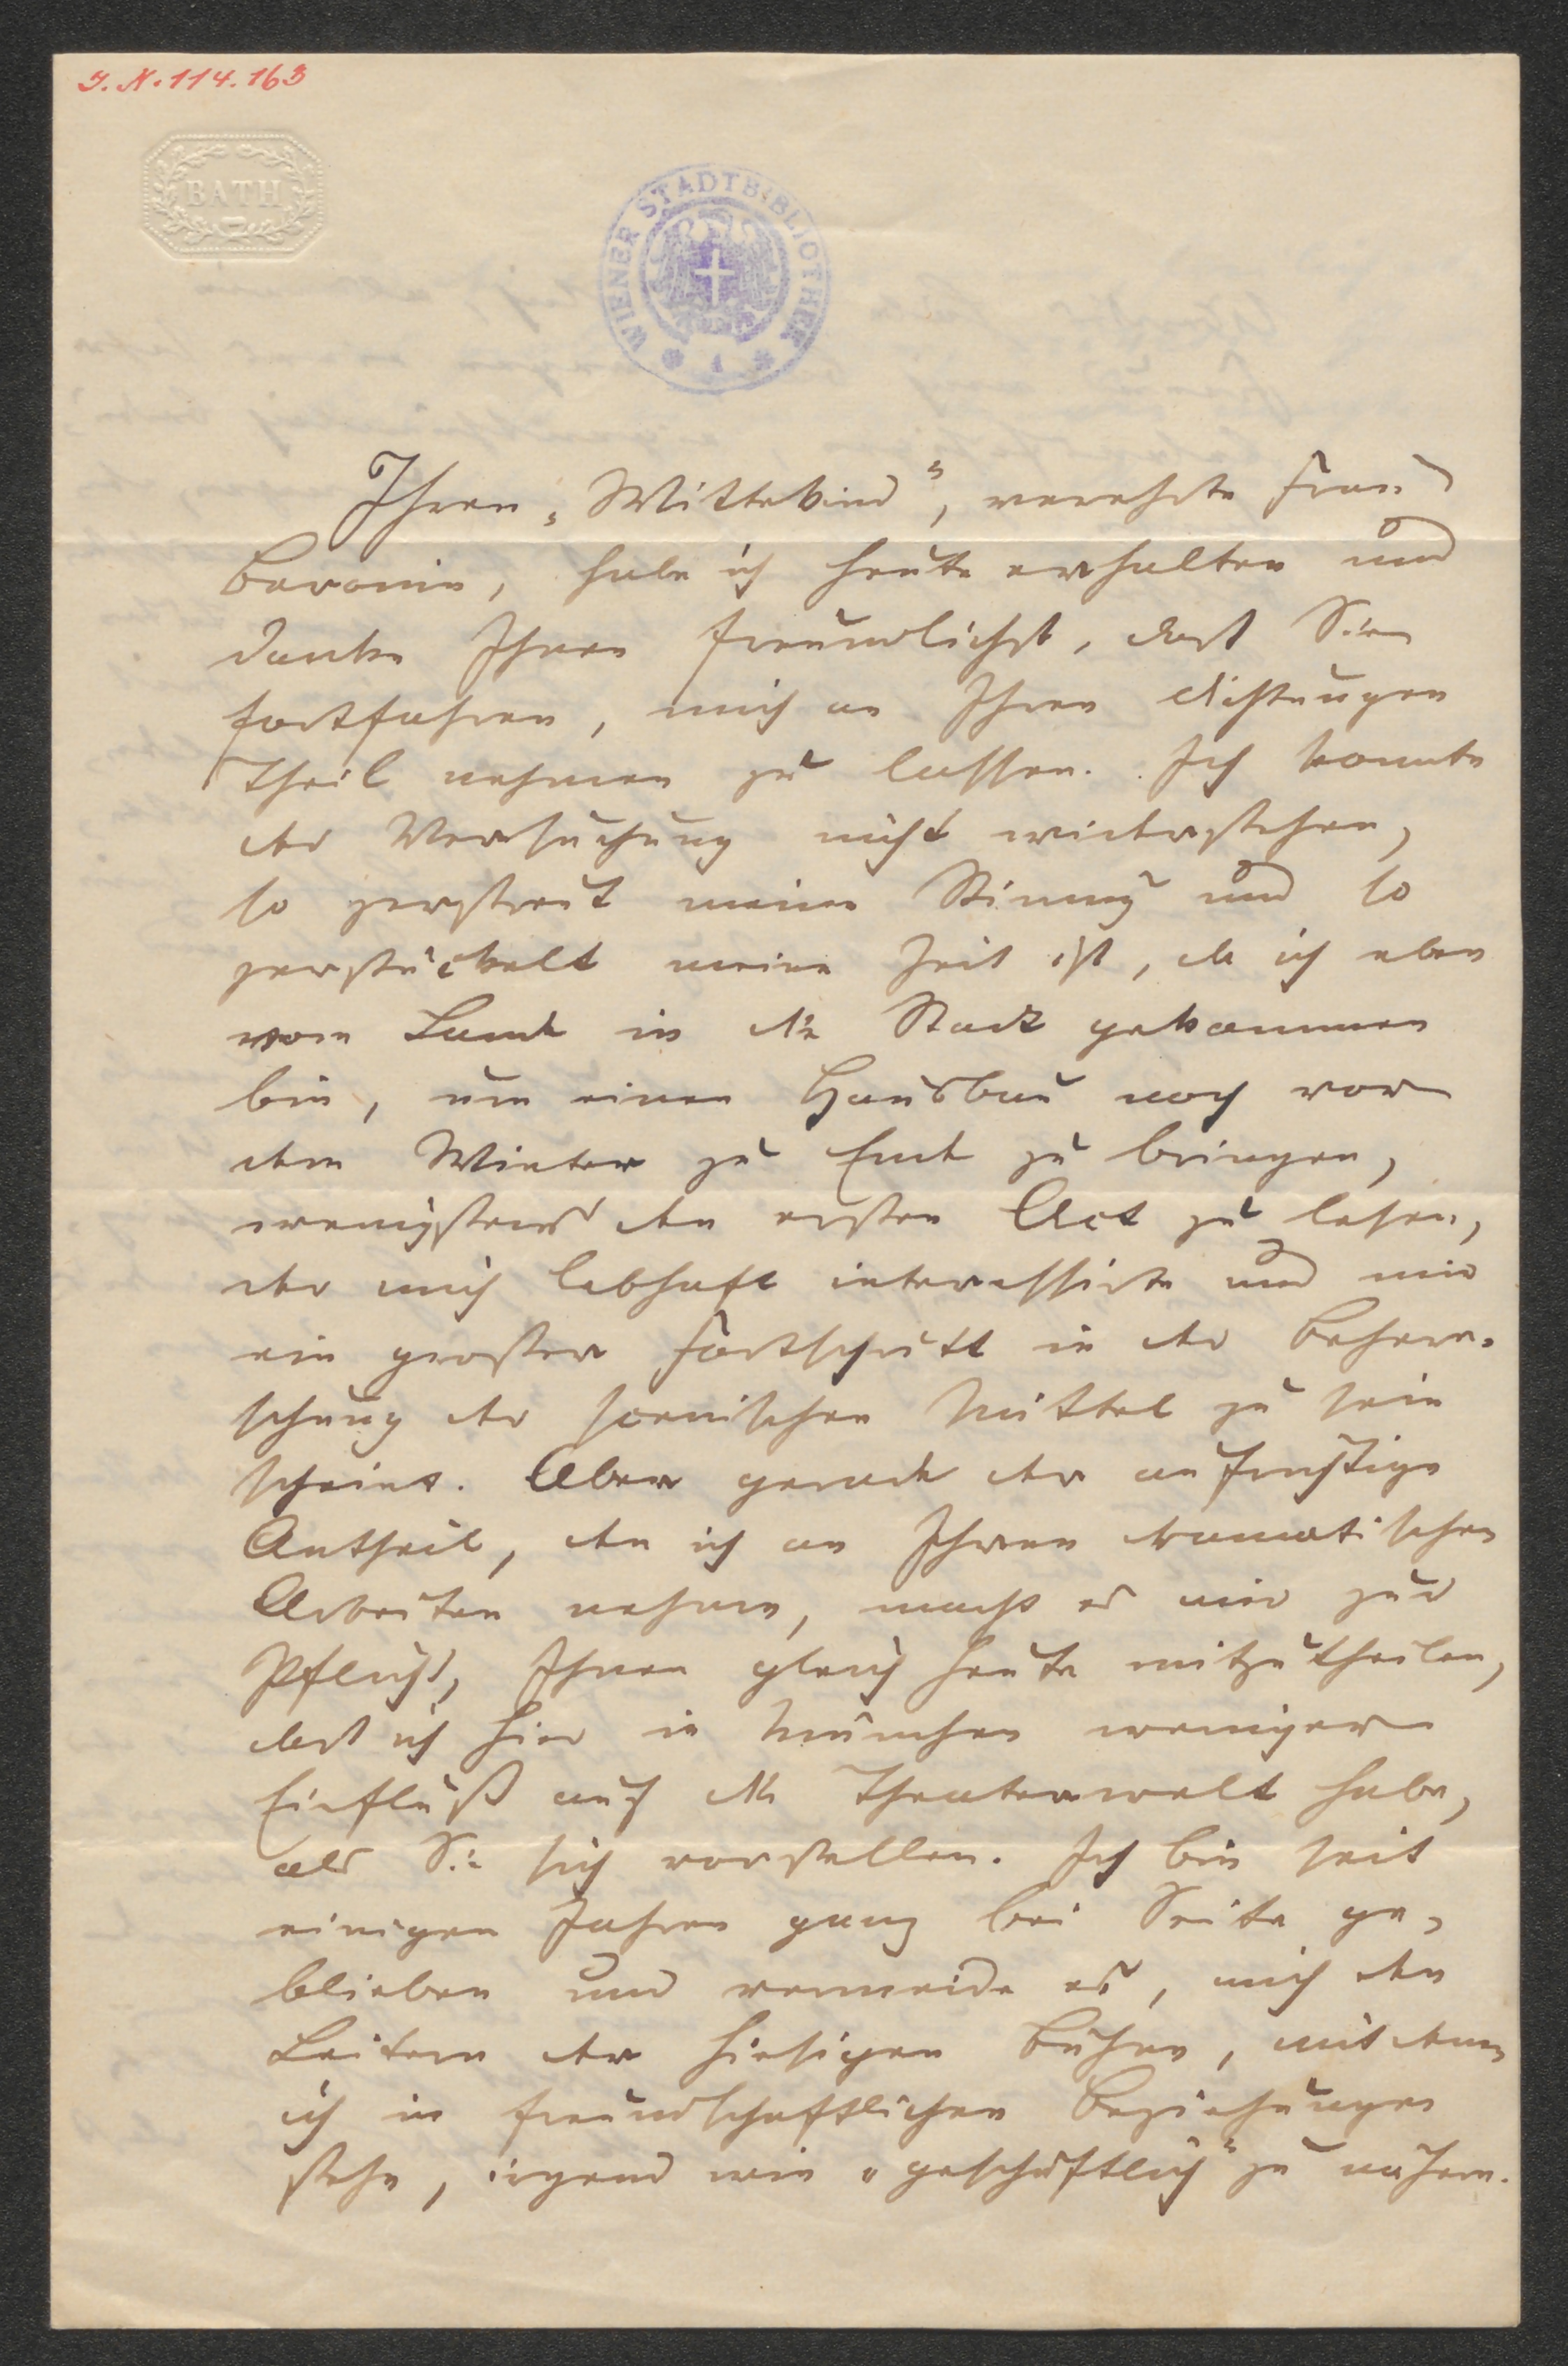 I. N. 114.163
BATH
WIENER STADTBIBLIOTHEK
1
Ihren „Wittekind“, verehrte Frau
Baronin, habe ich heute erhalten und
danke Ihnen freundlichst, daß Sie
fortfahren, mich an Ihren Dichtungen
Theil nehmen zu lassen. Ich konnte
der Versuchung nicht widerstehen,
so zerstreut meine Stimmg und so
zerstückelt meine Zeit ist, da ich eben
vom Lande in die Stadt gekommen
bin, um einen Hausbau noch vor
dem Winter zu Ende zu bringen,
wenigstens den ersten Act zu lesen,
der mich lebhaft interessirte und mir
ein großer Fortschritt in der Beherr-
schung der scenischen Mittel zu sein
scheint. Aber gerade der aufrichtige
Antheil, den ich an Ihren dramatischen
Arbeiten nehme, macht es mir zur
Pflicht, Ihnen gleich heute mitzutheilen,
daß ich hier in München weniger
Einfluß auf die Theaterwelt habe,
als Sie sich vorstellen. Ich bin seit
einigen Jahren ganz bei Seite ge-
blieben und vermeide es, mich den
Leitern der hiesigen Bühne, mit denen
ich in freundschaftlichen Beziehungen
stehe, irgend wie „geschäftlich“ zu nähern.